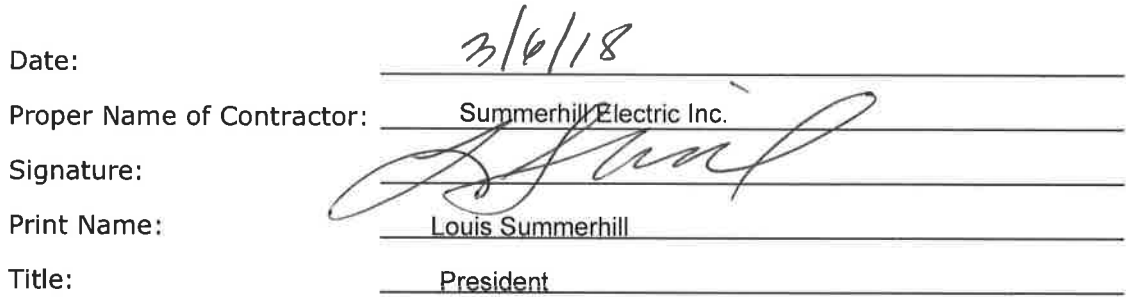 Date: 3/6/18
Proper Name of Contractor: Summerhill Electric Inc.
Signature:
Print Name: Louis Summerhill
Title: President